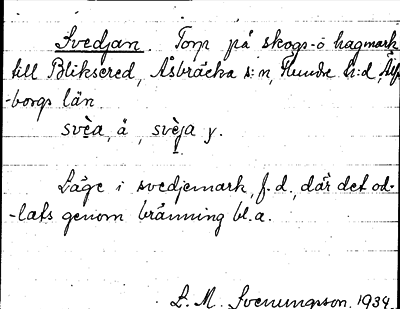 Svedjan. Torp på skogs- o hagmark
till Bliksered, Åsbräcka s:n, Flundre h:d, Älfs
-borgs län.
svèa, å, svèja y.
Läge i svedjemark, f.d., där det od-
-lats genom bränning bl.a.
L. M. Svenungsson. 1934.